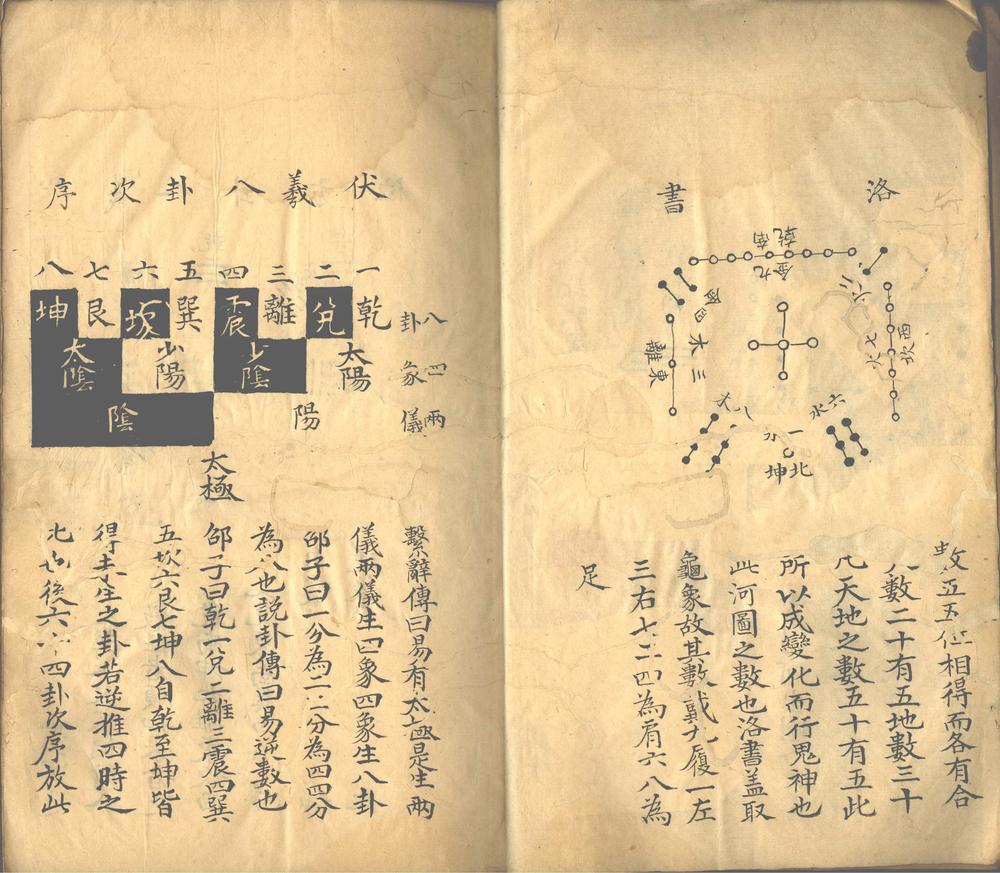 洛書
乾南
金九
坎西
七火
離東
三木
八木
六水
一水
坤北
五五位相得而各有合
數二十有五地數三十
凡天地之數五十有五此
所以成變化而行鬼神也
此河圖之數也洛書盖取
龜象故其數戴九履一左
三右七二四為肩六八為
足
伏羲八卦次序
一二三四五六七八
八卦
乾兌離震巽坎艮坤
四象
太陽 少陰 少陽 太陰
兩儀
陽 陰
太極
繫辭傳曰易有太極是生兩
儀兩儀生四象四象生八卦
邵子曰一分為二二分為四四分
為八也説卦傳曰易逆數也
邵子曰乾一兌二離三震四巽
五坎六艮七坤八自乾至坤皆
得未生之卦若逆推四時之
比也後六十四卦次序放此